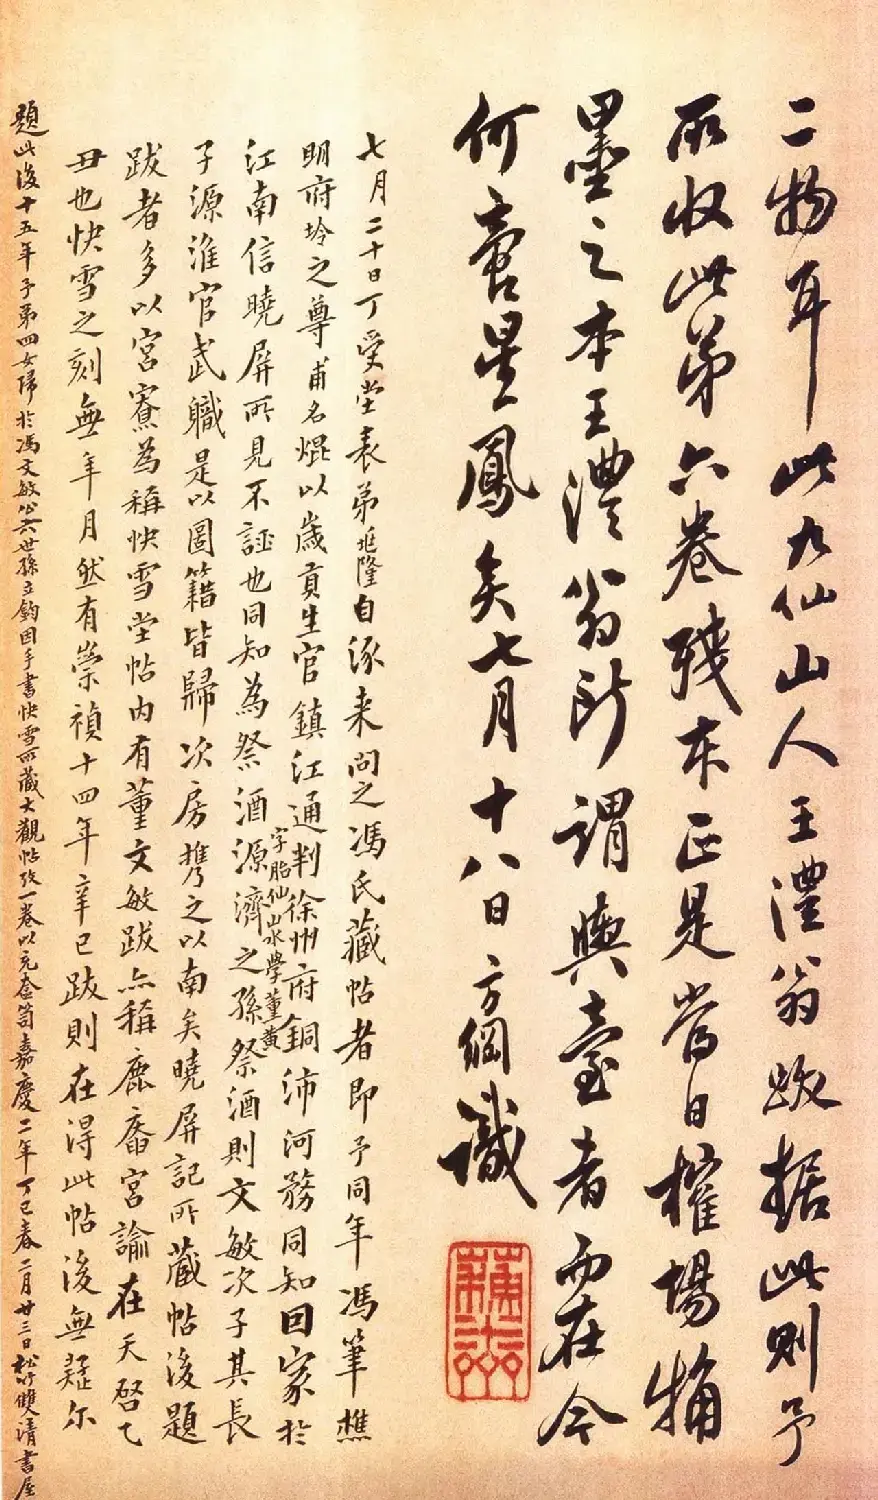 二物耳此九仙山人王澧翁跋据此則予
所收此弟六卷殘本正是當日榷場
墨之本王澧翁所謂輿臺者而在今
何啻星鳳矣七月十八日方綱識
七月二十日丁受堂表弟
隆自涿来問之馮氏藏帖者即予同年馮筆樵
明府坽之尊甫名焜以歲貢生官鎮江通判徐州府銅沛河務同知回家於
江南信曉屏所見不誣也同知為祭酒源濟之孫祭酒則文敏次子其長
字胎仙山水學董黄
子源淮官武職是以圖籍皆歸次房攜之以南矣曉屏記所藏帖後題
跋者多以宮寮為稱快雪堂帖内有董文敏跋亦稱鹿庵宮諭在天啓乙
丑也快雪之刻無年月然有崇禎十四年辛巳跋則在得此帖後無疑尔
題此後十五年予弟四女歸於馮文敏公六世孫立鈞因手書快雪所藏大觀帖攷一卷以充奩笥嘉慶二年丁巳春二月廿三日松竹雙清書屋
蘇齋